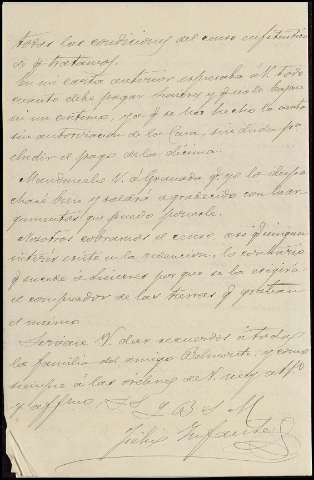 todas las condiciones del censo enfitéutico
de q tratamos.
En mi carta anterior expresaba á V. todo
cuanto debe pagar y
en un ya q se ha hecho la venta
sin autorización de la Casa, sin duda pa
eludir el pago de la décima.
Mandemelo V. á Granada q yo lo despa
charé bien y saldrá agradecido con los ar
gumentos que puedo ponerle.
Nosotros cobramos el censo así q ningun
interés existe en la redencion, lo contrario
q sucede á por que se la exigirá
el comprador de las tierras q gestian
el mismo.
Sirvase V. dar recuerdos á toda
la familia del amigo y como
siempre á las órdenes de V. su
y affmo. S. S. q B. S. M.
Infante